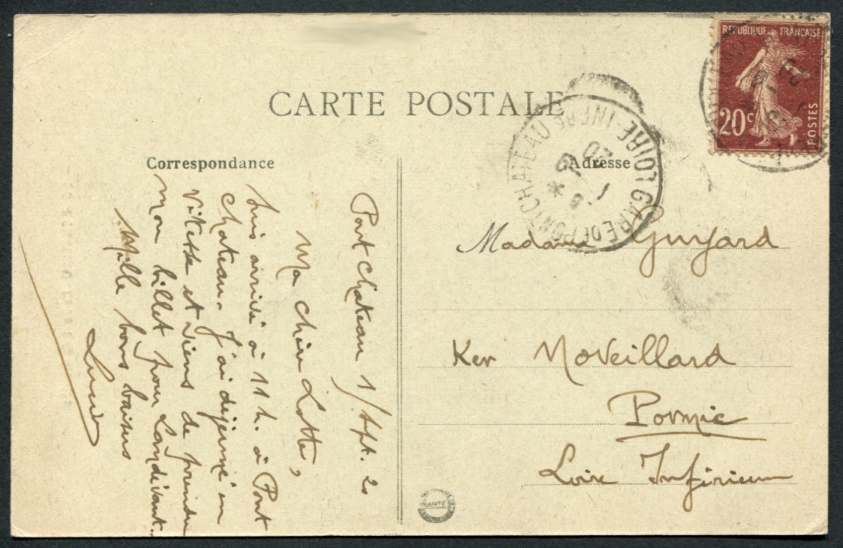 CARTE POSTALE
Correspondance
Adresse
REPUBLIQUE FRANÇAISE
20c
POSTES
GARE DE PONTCHATEAU
LOIRE-INFRE
Pontchateau 1/Sept. 20
Ma chère Lotte,
Suis arrivé à 11h. à Pont
chateau. J'ai déjeuné en
vitesse et viens de prendre
mon billet pour Landivant.
Mille bons baisers
Lucien
Madame Guyard
Ker Noveillard
Pornic
Loire Inférieure